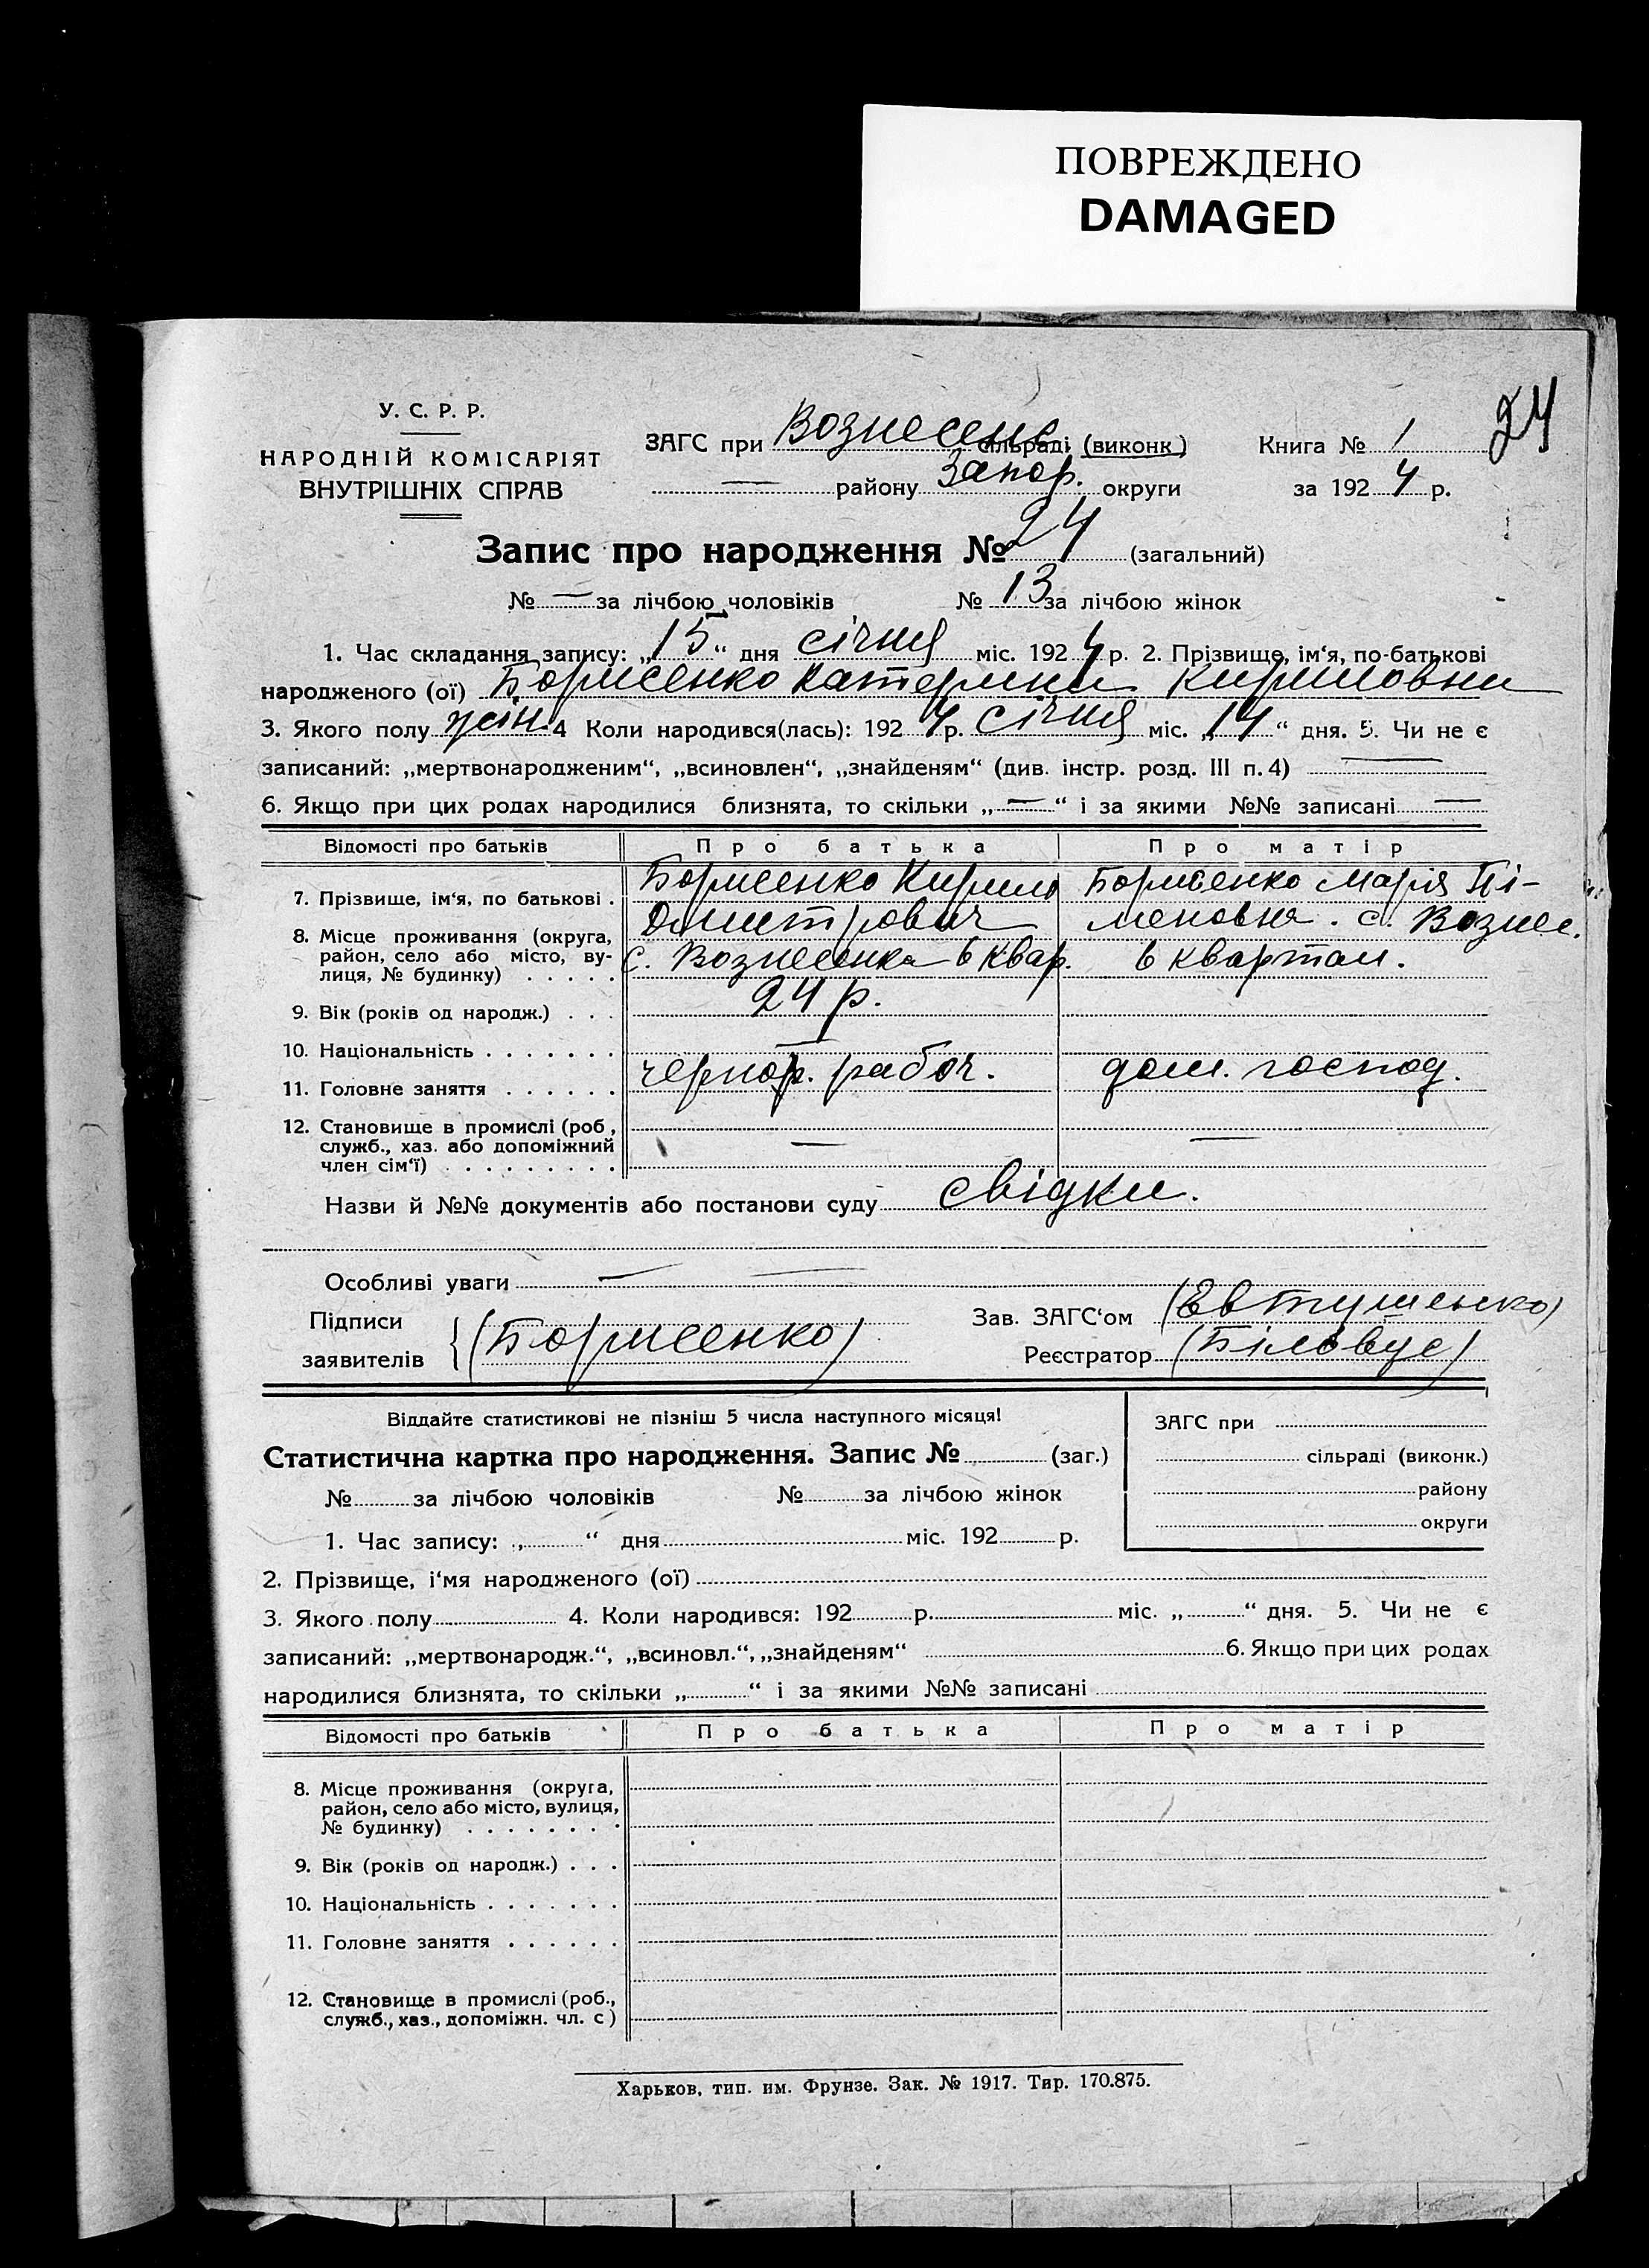 ПОВРЕЖДЕНО
DAMAGED
24
У. С. Р. Р.
НАРОДНІЙ КОМІСАРІЯТ
ВНУТРІШНІХ СПРАВ
ЗАГС при Вознесенс. сільраді (виконк.)
— району Запор. округи
Книга № 1
за 1924 р.
Запис про народження № 24 (загальний)
№ — за лічбою чоловіків № 13 за лічбою жінок
1. Час складання запису: „15“ дня січня міс. 1924 р. 2. Прізвище, ім‘я, по-батькові
народженого (ої) Борисенко Катерина Кириловна
3. Якого полу жін. 4 Коли народився(лась): 1924 р. січня міс. „14“ дня. 5. Чи не є
записаний: „мертвонародженим“, „всиновлен“, „знайденям“ (див. інстр. розд. III п. 4) —
6. Якщо при цих родах народилися близнята, то скільки „—“ і за якими №№ записані —
Відомості про батьків Про батька Про матір
7. Прізвище, ім‘я, по батькові . Борисенко Кирило Борисенко Марія Пі-
Дмитрович меновна . с. Вознес.
8. Місце проживання (округа,
район, село або місто, ву-
лиця, № будинку) . . . . . с. Вознесенка 6 квар. 6 квартал.
9. Вік (років од народж.) . . . 24 р.
10. Національність . . . . . . .
11. Головне заняття . . . . . . чернор. рабоч. дом. господ.
12. Становище в промислі (роб.,
служб., хаз. або допоміжний
член сім‘ї) . . . . . . . . . — —
Назви й №№ документів або постанови суду свідки.
Особливі уваги — —
Підписи
заявителів { (Борисенко)
Зав. ЗАГС‘ом (Евтушенко)
Реєстратор (Біловус)
Віддайте статистикові не пізніш 5 числа наступного місяця!
Статистична картка про народження. Запис № (заг.)
№ за лічбою чоловіків № за лічбою жінок
1. Час запису: „ “ дня міс. 192 р.
ЗАГС при
сільраді (виконк.)
району
округи
2. Прізвище, і‘мя народженого (ої)
3. Якого полу 4. Коли народився: 192 р. міс. „ “ дня. 5. Чи не є
записаний: „мертвонародж.“, „всиновл.“, „знайденям“ 6. Якщо при цих родах
народилися близнята, то скільки „ “ і за якими №№ записані
Відомості про батьків Про батька Про матір
8. Місце проживання (округа,
район, село або місто, вулиця,
№ будинку) . . . . . . . .
9. Вік (років од народж.) . . .
10. Національність . . . . . . .
11. Головне заняття . . . . . .
12. Становище в промислі (роб.,
служб., хаз., допоміжн. чл. с )
Харьков, тип. им. Фрунзе. Зак. № 1917. Тир. 170.875.